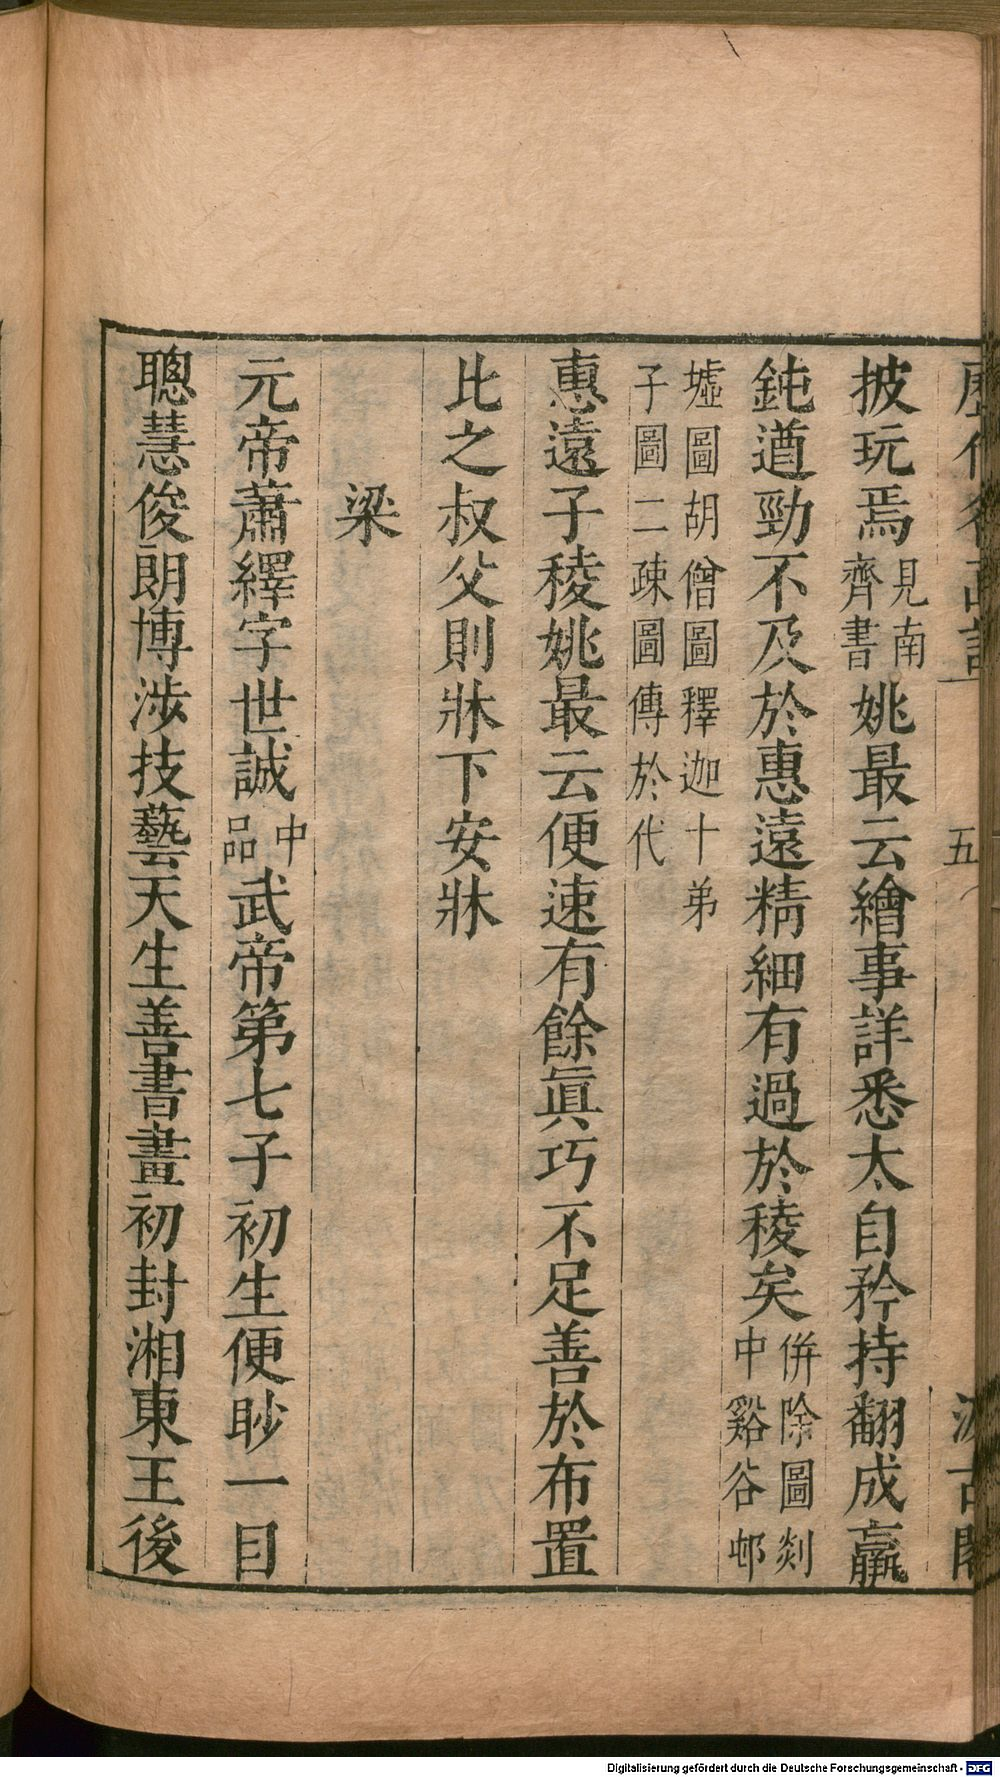 五
披玩焉見南齊書姚最云繪事詳悉太自矜持翻成羸
鈍遒勁不及於惠遠精細有過於稜矣併除圖剡中谿谷邨
墟圖胡僧圖釋迦十弟子圖二疎圖傳於代
惠遠子稜姚最云便速有餘眞巧不足善於布置
比之叔父則牀下安牀
梁
元帝蕭繹字世誠中品武帝第七子初生便眇一目
聰慧俊朗博涉技藝天生善書畫初封湘東王後
Digitalisierung gefördert durch die Deutsche Forschungsgemeinschaft - DFG